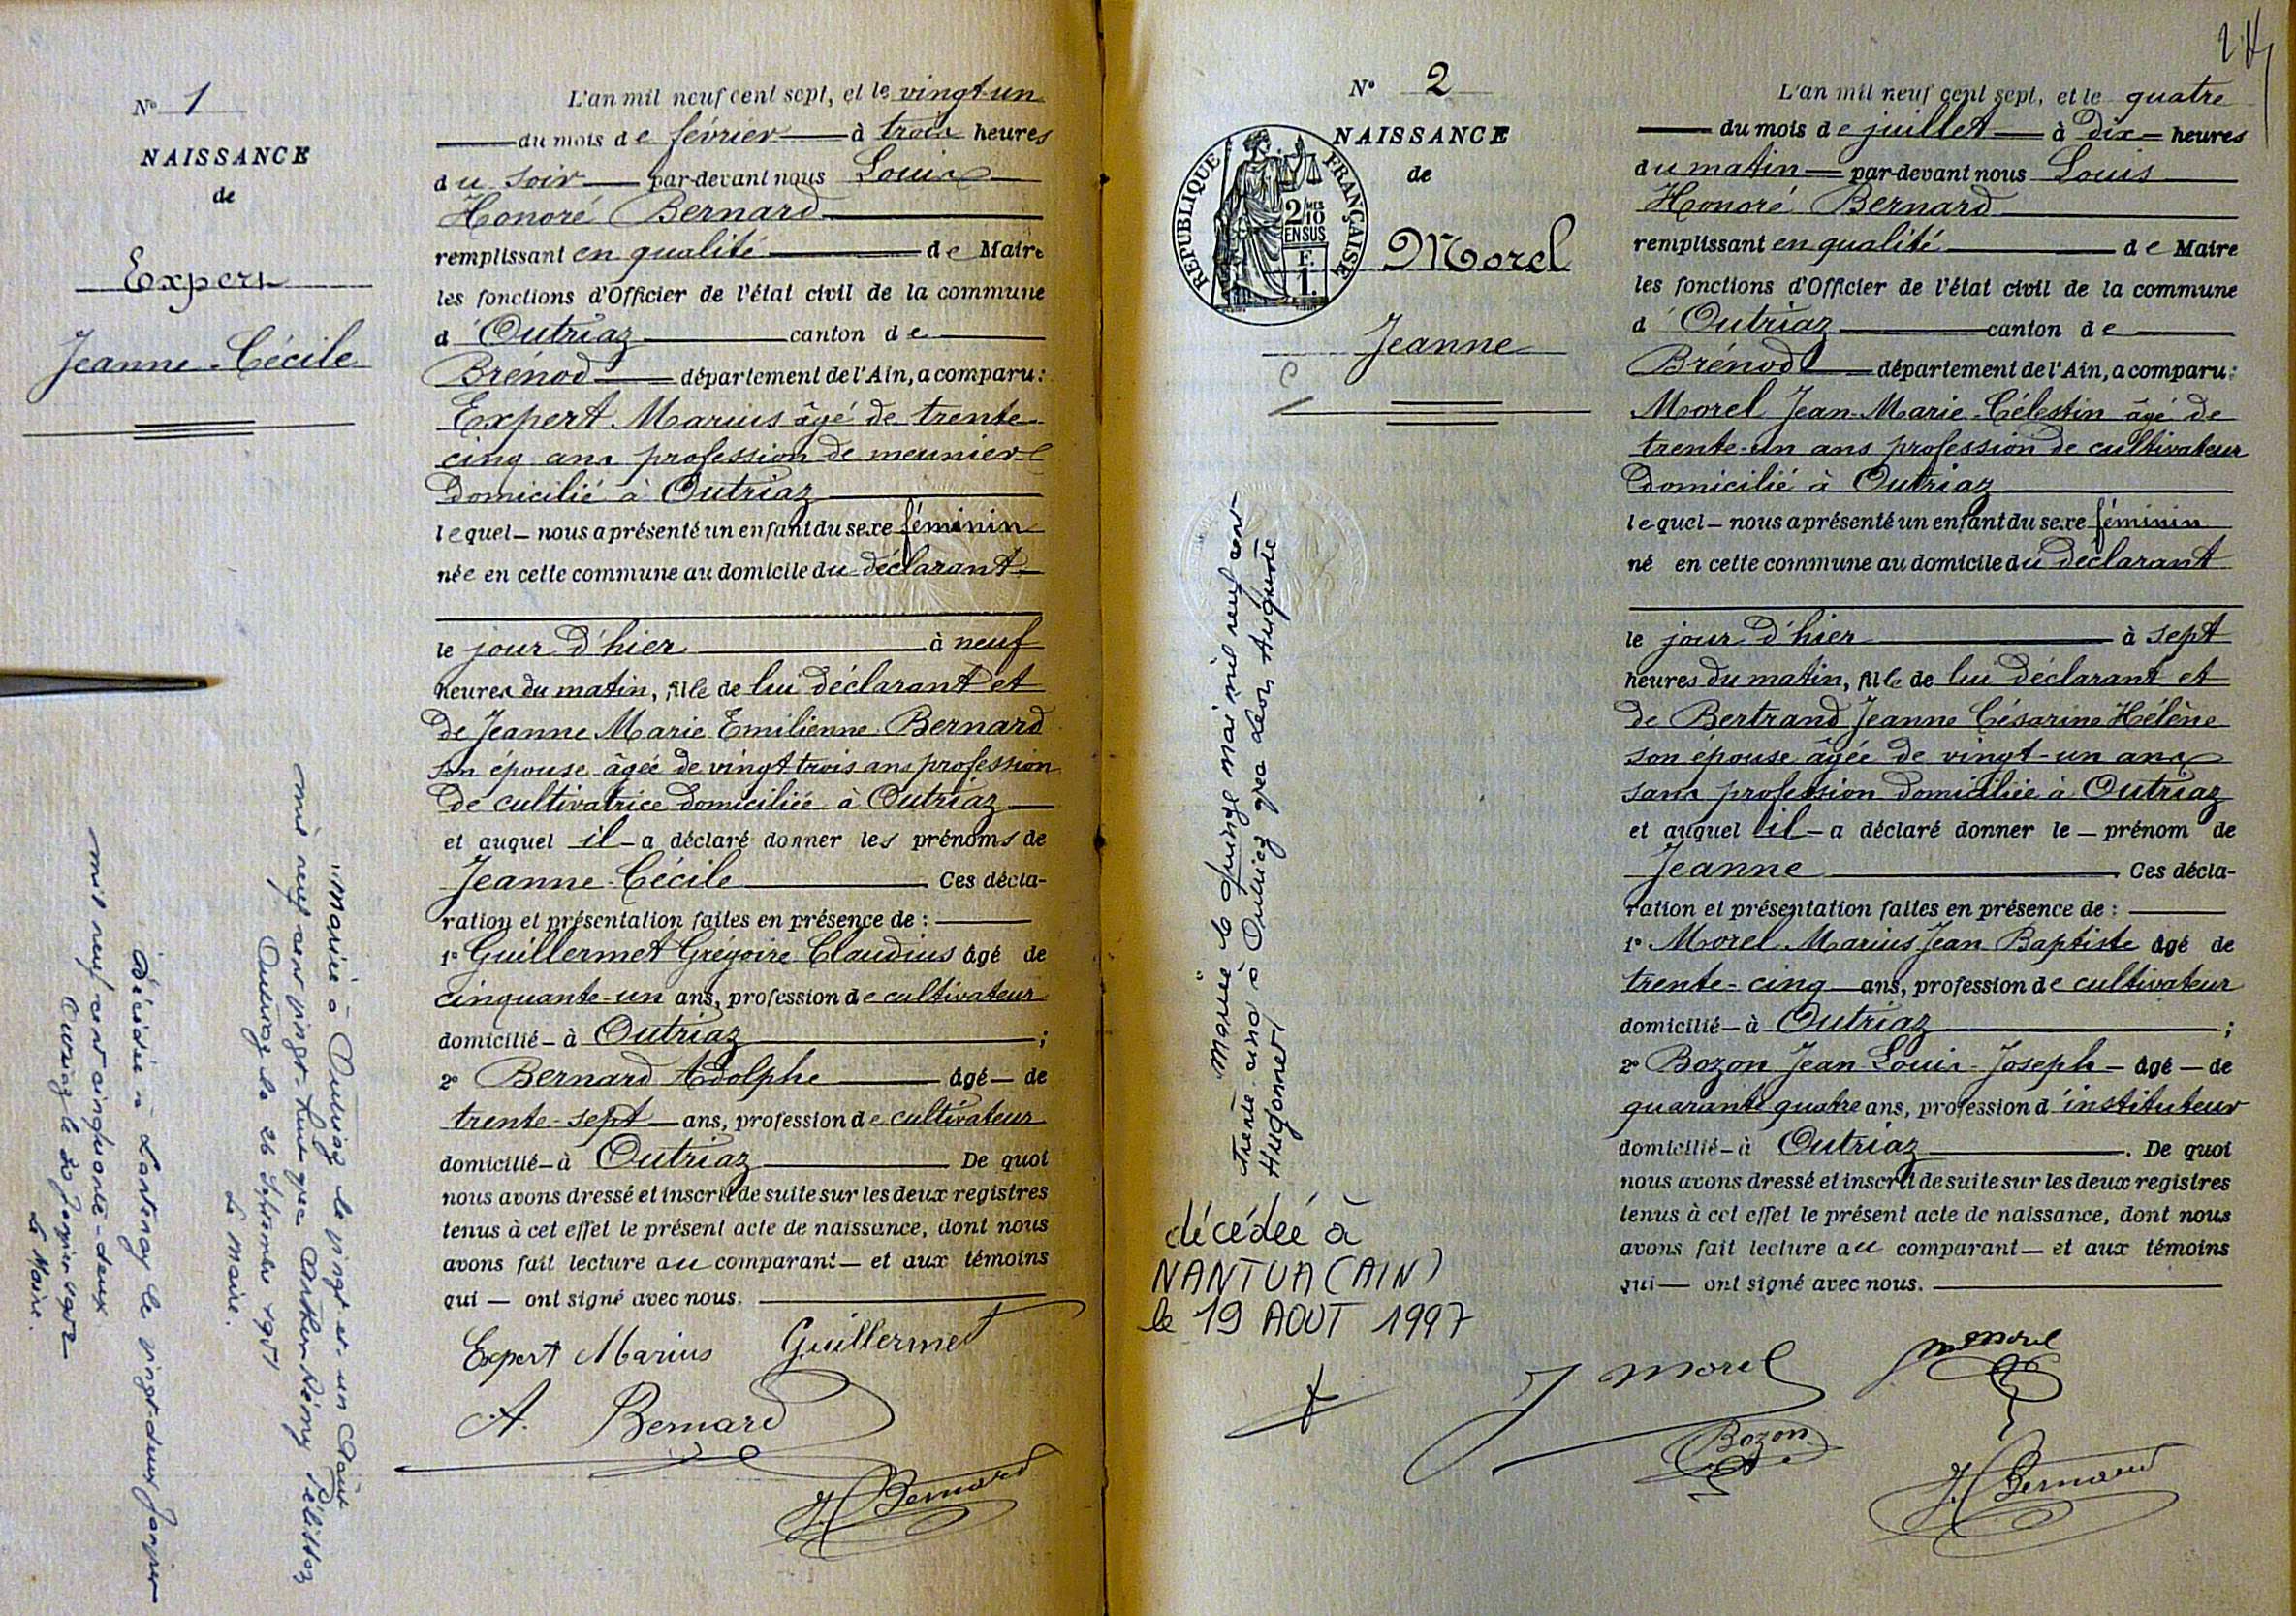 N° 1
NAISSANCE
de
Expert
Jeanne-Cécile
L'an mil neuf cent sept, et le vingt-un
du mois de février à trois heures
du soir par-devant nous Louis
Honoré Bernard
remplissant en qualité de Maire
les fonctions d'Officier de l'état civil de la commune
d'Outriaz canton de
Brénod département de l'Ain, a comparu:
Expert Marius âgé de trente-
cinq ans profession de meunier
domicilié à Outriaz
lequel nous a présenté un enfant du sexe féminin
née en cette commune au domicile du déclarant
le jour d'hier à neuf
heures du matin, fille de lui déclarant et
de Jeanne Marie Emilienne Bernard
son épouse âgée de vingt trois ans profession
de cultivatrice domiciliée à Outriaz
et auquel il a déclaré donner les prénoms de
Jeanne-Cécile Ces décla-
ration et présentation faites en présence de :
1° Guillermet Grégoire Claudius âgé de
cinquante-un ans, profession de cultivateur
domicilié à Outriaz ;
2° Bernard Adolphe âgé de
trente-sept ans, profession de cultivateur
domicilié à Outriaz De quoi
nous avons dressé et inscrit de suite sur les deux registres
tenus à cet effet le présent acte de naissance, dont nous
avons fait lecture au comparant et aux témoins
qui ont signé avec nous.
Expert Marius Guillermet
A. Bernard
H. Bernard
Mariée à Outriaz le vingt et un Août
mil neuf cent vingt-huit avec Rémy
Outriaz le 26 1951
Le Maire.
Décédée à Lantenay le vingt-deux janvier
mil neuf cent cinquante-deux
Outriaz le 30 Janvier 1952
Le Maire.
N° 2
NAISSANCE
de
RÉPUBLIQUE FRANÇAISE
2/10 MES
EN SUS
F.
1.
Morel
Jeanne
Mariée le quinze mai mil neuf cent
trente cinq à Outriaz avec Léon Auguste
Hugonnet
décédée à
NANTUA (AIN)
le 19 AOUT 1997
L'an mil neuf cent sept, et le quatre
du mois de juillet à dix heures
du matin par-devant nous Louis
Honoré Bernard
remplissant en qualité de Maire
les fonctions d'Officier de l'état civil de la commune
d'Outriaz canton de
Brénod département de l'Ain, a comparu:
Morel Jean-Marie-Célestin âgé de
trente-un ans profession de cultivateur
domicilié à Outriaz
lequel nous a présenté un enfant du sexe féminin
né en cette commune au domicile du déclarant
le jour d'hier à sept
heures du matin, fille de lui déclarant et
de Bertrand Jeanne Césarine Hélène
son épouse âgée de vingt-un ans
sans profession domiciliée à Outriaz
et auquel il a déclaré donner le prénom de
Jeanne Ces décla-
ration et présentation faites en présence de :
1° Morel Marius Jean Baptiste âgé de
trente-cinq ans, profession de cultivateur
domicilié à Outriaz ;
2° Bozon Jean Louis Joseph âgé de
quarante quatre ans, profession d'instituteur
domicilié à Outriaz. De quoi
nous avons dressé et inscrit de suite sur les deux registres
tenus à cet effet le présent acte de naissance, dont nous
avons fait lecture au comparant et aux témoins
qui ont signé avec nous.
J Morel M Morel
Bozon
H. Bernard